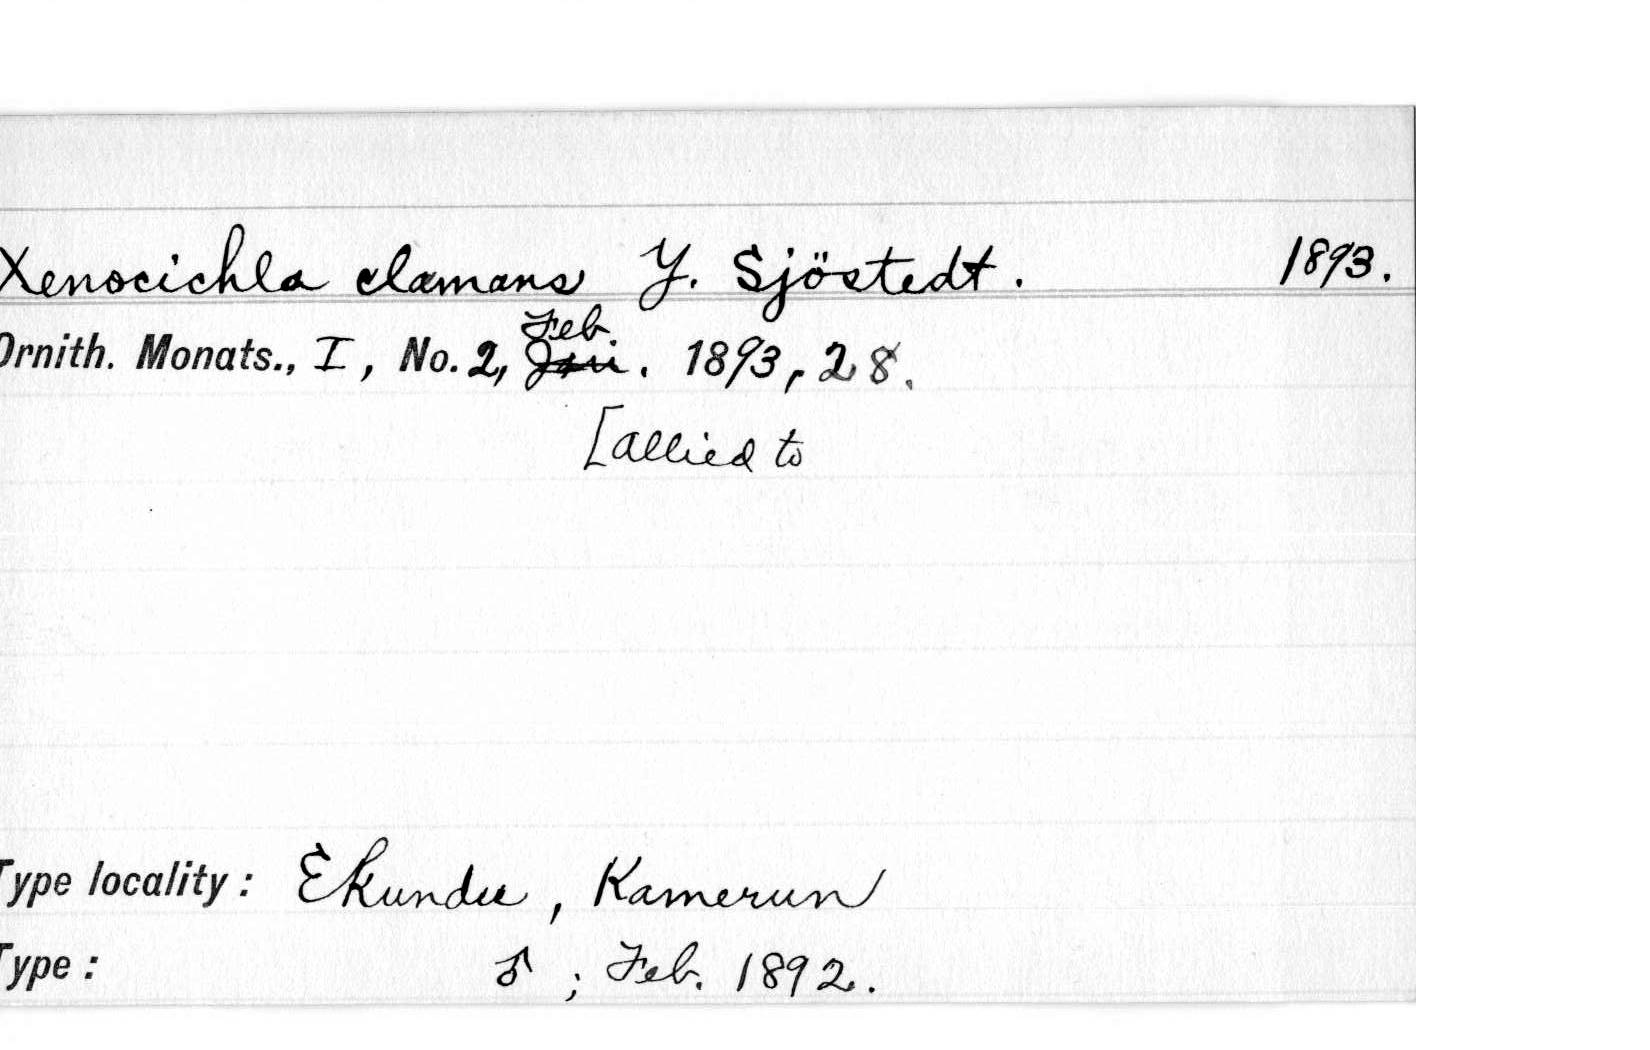 Xenocichla clamans Y. Sjöstedt. 1893.
Feb.
Ornith. Monats., I, No. 2, Jan. 1893, 28.
[allied to
Type locality: Ekundu, Kamerun
Type: ♂; Feb. 1892.